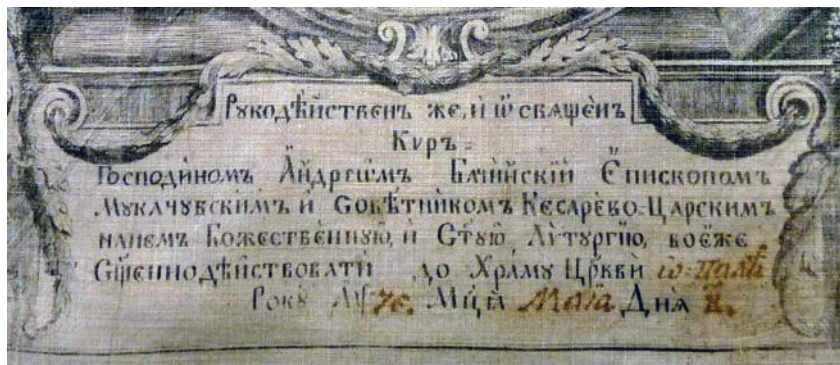 Рꙋкодѣйственъ же, и ѡсвященъ
Кѵръ
Господиномъ Андреѡмъ Бачинскій Епископомъ
Мꙋкачовскимъ и Совѣтникомъ Кесарево-Царскимъ
на немъ Божественную, и Ст҃ꙋю Литꙋргію, воеже
Сщ҃еннодѣйствовати до Храмꙋ Цр҃кви
Рокꙋ Мц҃а Маіа Дня